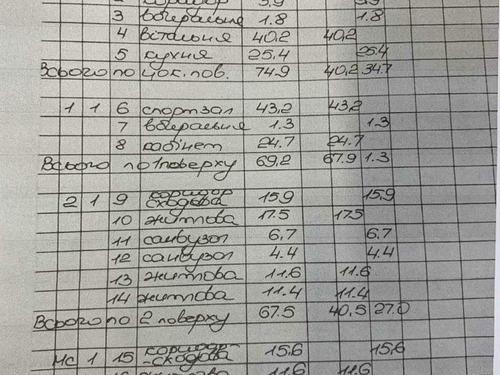 3 вбиральня 1.8 1.8
4 вітальня 40,2 40,2
5 кухня 25,4 25,4
Всього по цок. пов. 74.9 40,2 34.7
1 1 6 спортзал 43,2 43,2
7 вбиральня 1.3 1.3
8 кабінет 24.7 24.7
Всього по 1 поверху 69,2 67.9 1.3
2 1 9 коридор 15.9 15.9
сходова
10 житлова 17.5 17.5
11 санвузол 6,7 6,7
12 санвузол 4.4 4.4
13 житлова 11.6 11.6
14 житлова 11.4 11.4
Всього по 2 поверху 67.5 40,5 27.0
мс 1 15 коридор 15,6 15,6
-сходова
11.6 11.6